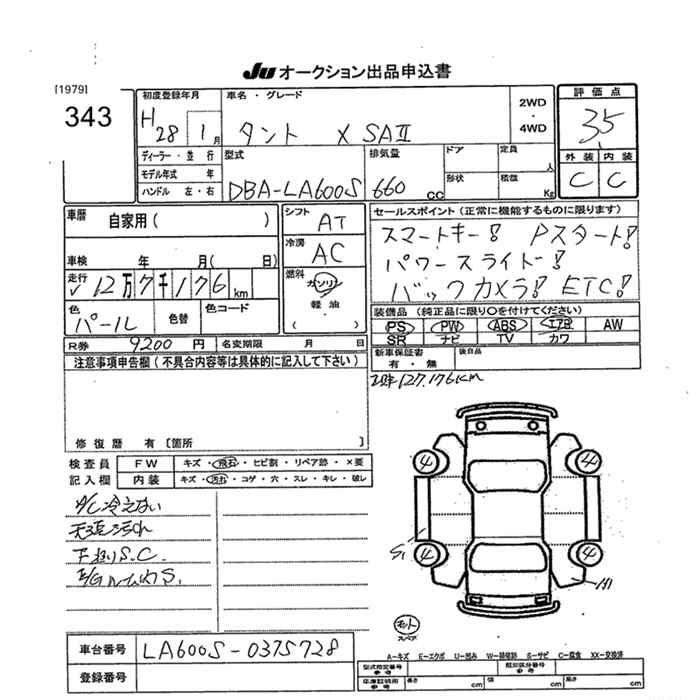 JU オークション出品申込書
[1979]
343
初度登録年月
H 28 1 月
車名・グレード
タント X SAⅡ
2WD
・
4WD
評価点
3.5
外装 内装
C C
ディーラー・並行
モデル年式 年
ハンドル 左・右
型式
DBA-LA600S
排気量
660 cc
ドア
形状
定員 人
積載 Kg
車歴 自家用( )
車検 年 月( 日)
走行 12万7千176 km
色 パール
色替
色コード
シフト AT
冷房 AC
燃料
ガソリン
軽油
・
( )
セールスポイント(正常に機能するものに限ります)
スマートキー! Pスタート!
パワースライド!
バックカメラ! ETC!
装備品(純正品に限り○を付けてください)
PS PW ABS エアB AW
SR ナビ TV カワ
新車保証書
有・無
後日品
R券 9200 円
名変期限 月 日
注意事項申告欄(不具合内容等は具体的に記入して下さい)
127,176km
修復歴 有 [箇所 ]
検査員
記入欄
FW キズ・飛石・ヒビ割・リペア跡・×要
内装 キズ・汚れ・コゲ・穴・スレ・キレ・破レ
A/C冷えない
天張汚れ
下廻りS.C.
E/GルームS.
4 4
4 4
S1
A1
キット
スペア
A-キズ E-エクボ U-凹み W-補修跡 S-サビ C-腐食 XX-交換済
車台番号 LA600S-0375728
登録番号
型式指定番号
参考
類別区分番号
参考
車庫証明用
参考
長さ cm
幅 cm
高さ cm